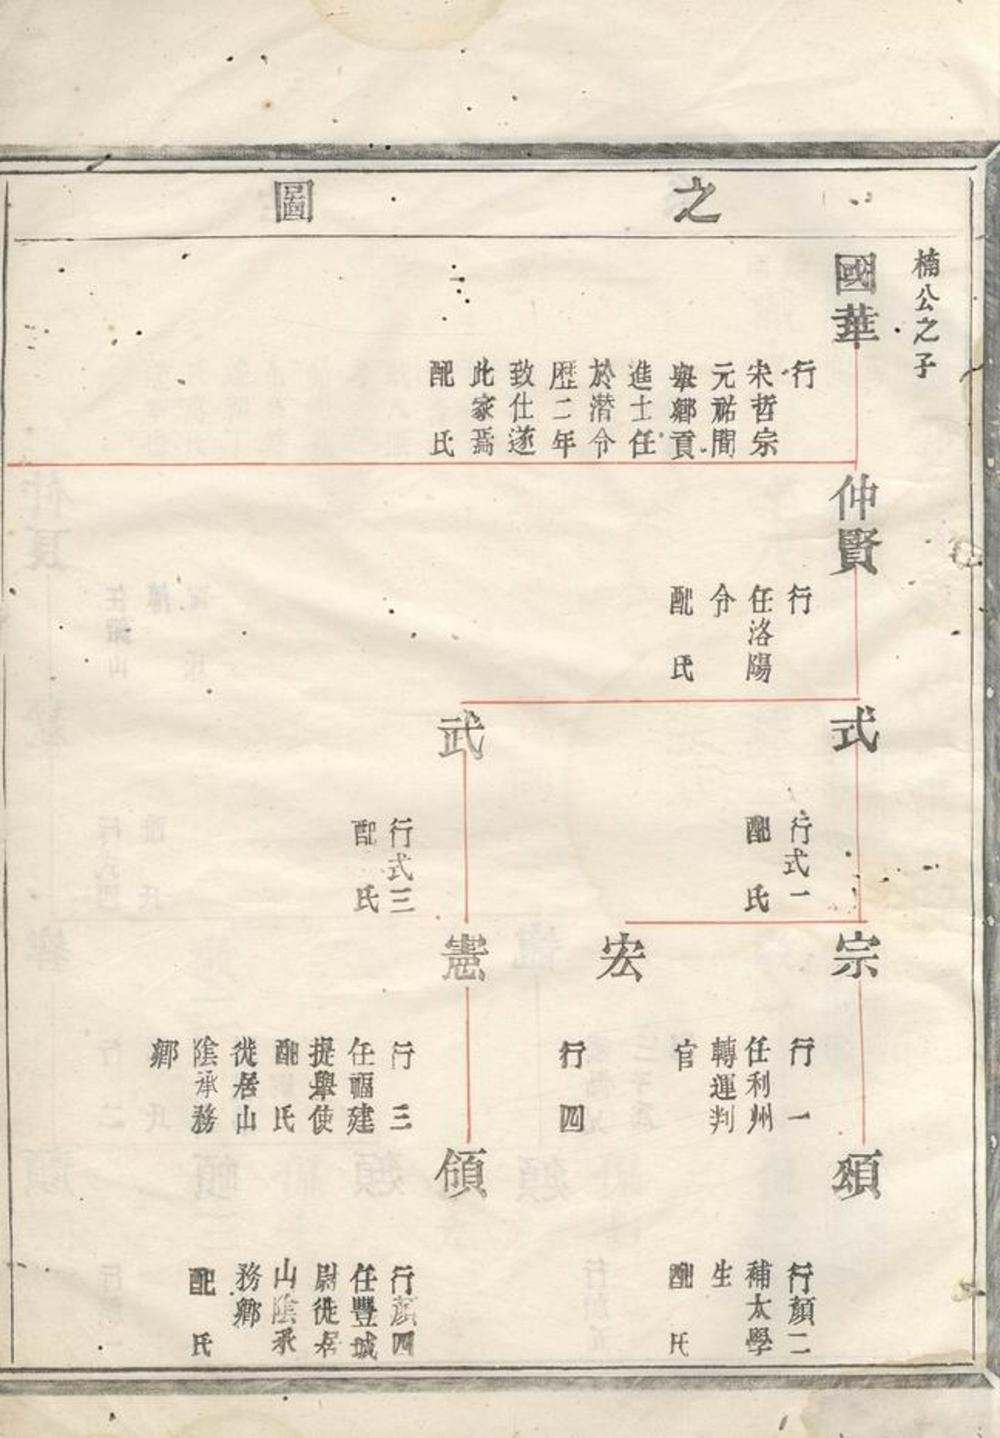 之 圖
楠公之子
國華
行
宋哲宗
元祐間
舉鄉貢
進士任
於潛令
歷二年
致仕遂
此家焉
配 氏
仲賢
行
任洛陽
令
配 氏
式
行式一
配 氏
武
行式三
配 氏
宗
行 一
任利州
轉運判
官
宏
行 四
憲
行 三
任福建
提舉使
配 氏
徙居山
陰承務
鄉
頌
行顏二
補太學
生
配 氏
頎
行顏四
任豐城
尉徙居
山陰承
務鄉
配 氏